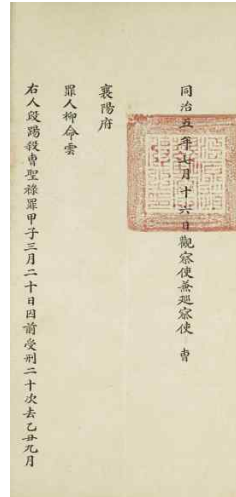 同治五年七月十六日觀察使兼巡察使 曹
襄陽府
罪人柳命雲
右人段踢殺曹聖祿罪甲子三月二十日因前受刑二十次去乙丑九月